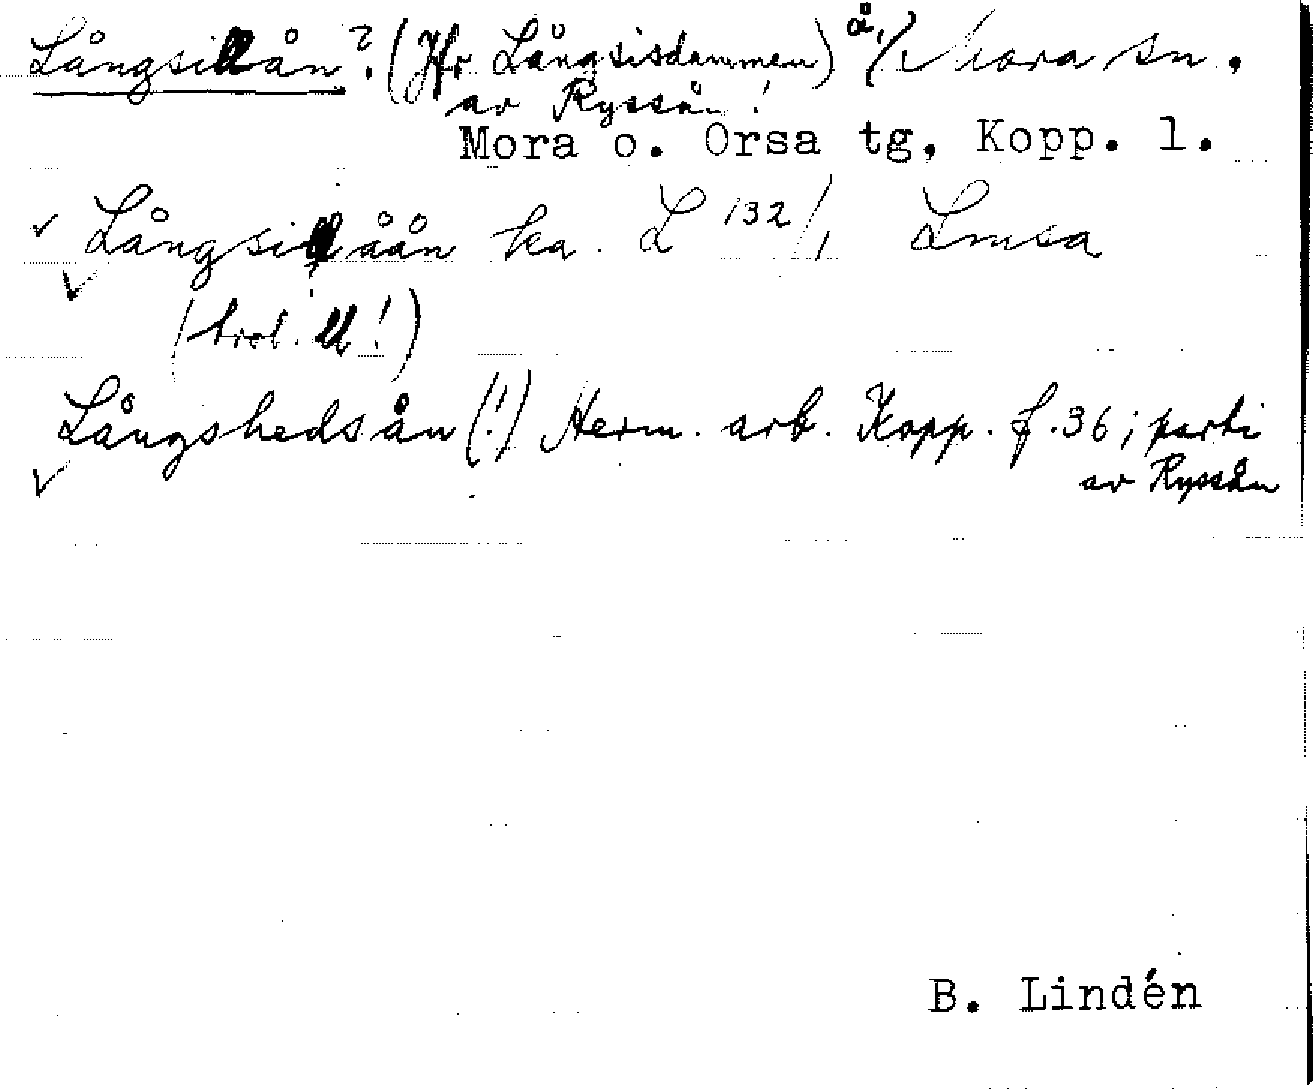 Långsillån? (Jfr Långsisdammen) å, i Mora sn.
av Ryssån!
Mora o. Orsa tg, Kopp. l.
Långsillåån ka. L 132/1 Lmsa
(trol. ll!)
Långshedsån (!) Herm. arb. Kopp. f. 36; parti
av Ryssån
B. Lindén